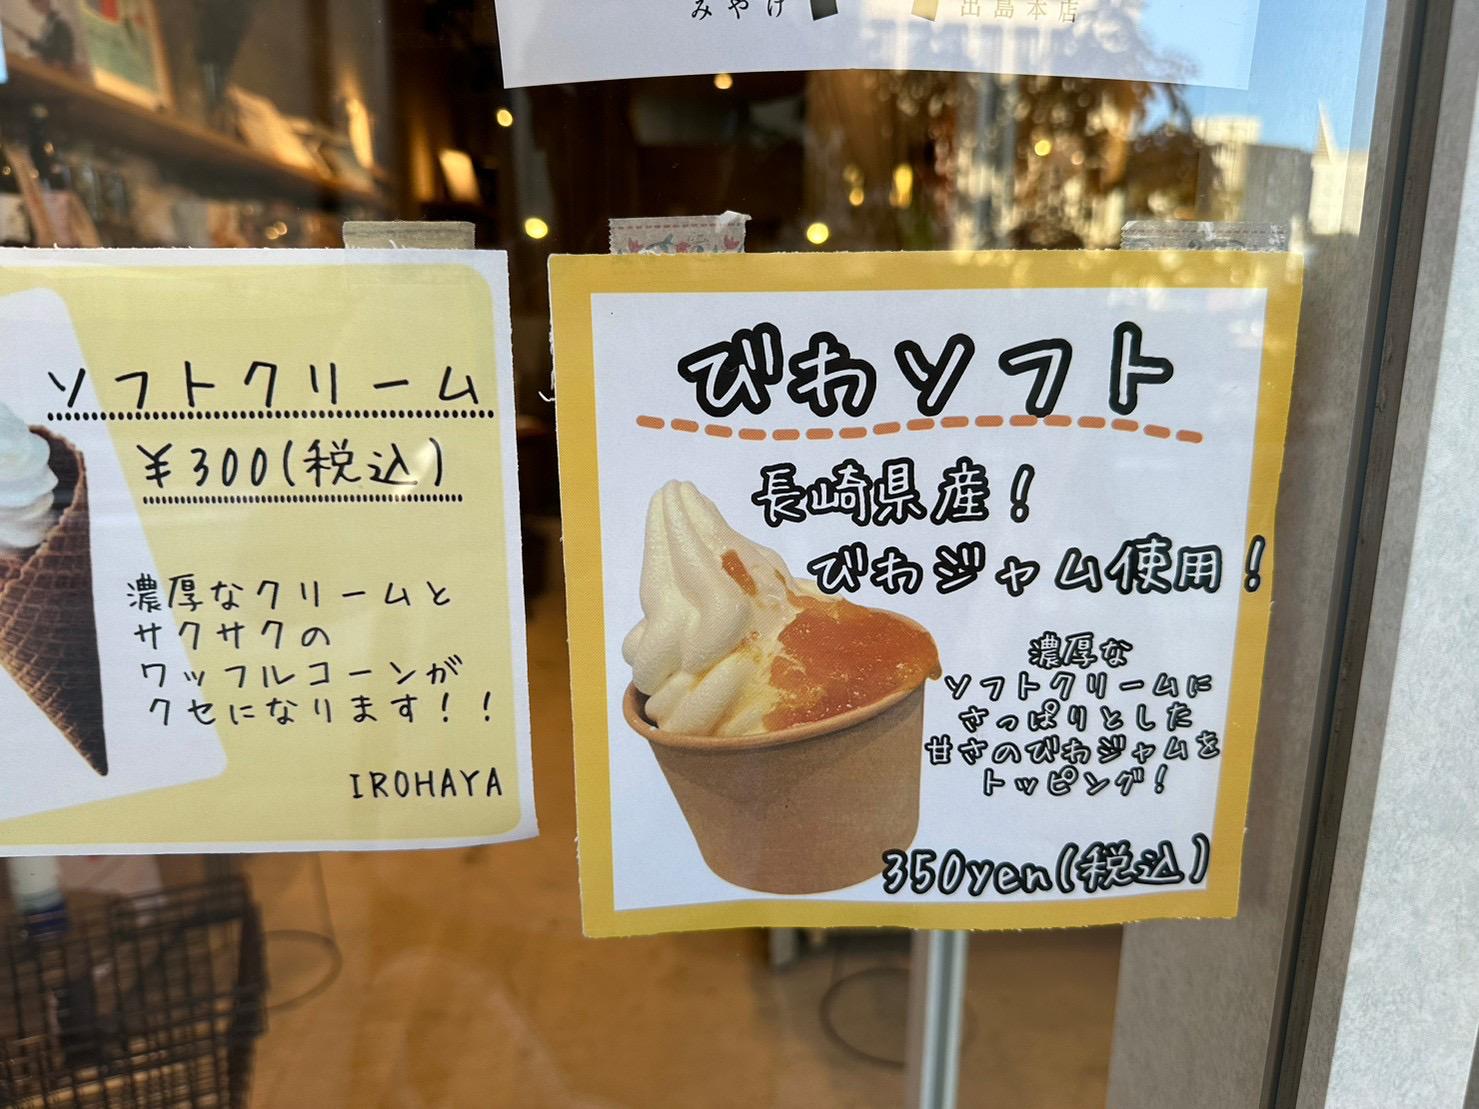 みやげ
出島本店
ソフトクリーム
¥300(税込)
濃厚なクリームと
サクサクの
ワッフルコーンが
クセになります！！
IROHAYA
びわソフト
長崎県産！
びわジャム使用！
濃厚な
ソフトクリームに
さっぱりとした
甘さのびわジャムを
トッピング！
350yen(税込)